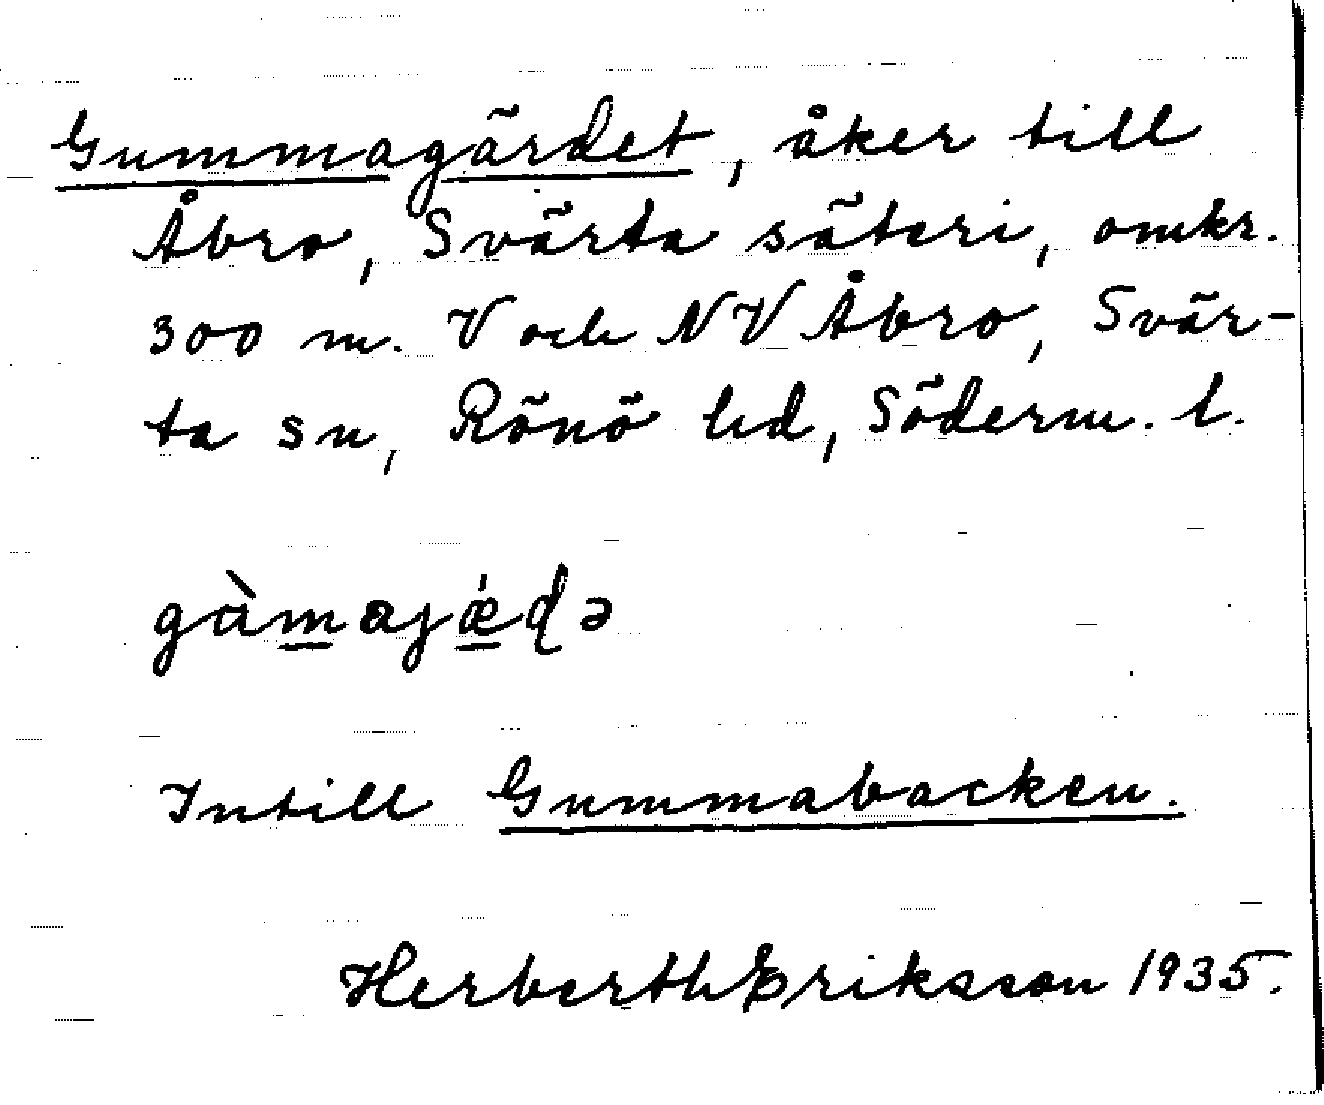 Gummagärdet, åker till
Åbro, Svärta säteri, omkr.
300 m. V och NV Åbro, Svär-
ta sn, Rönö hd, Söderm. l.
gàmajǽɖə
Intill Gummabacken.
Herberth Eriksson 1935.